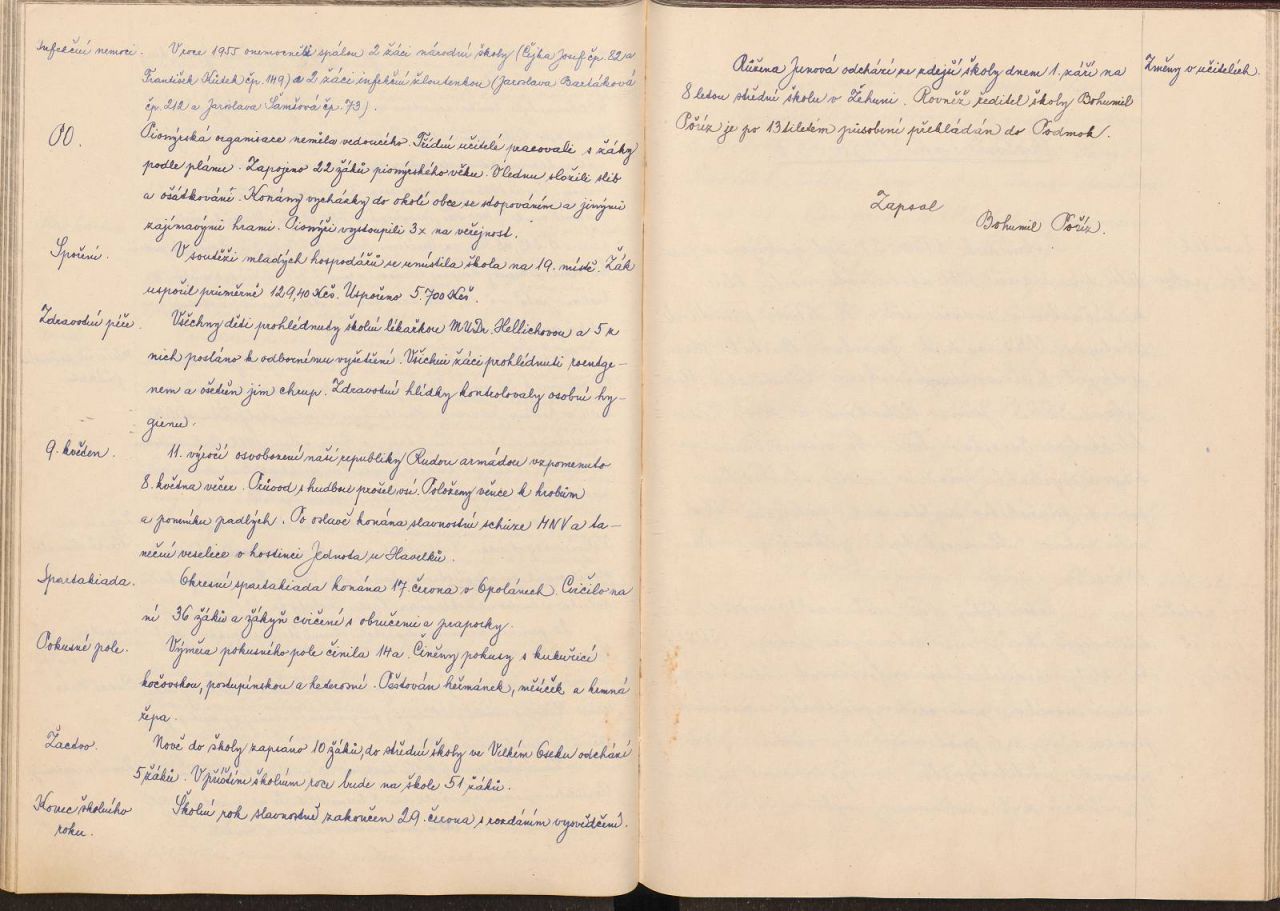 Infekční nemoci. V roce 1955 onemocněli spálou 2 žáci národní školy (Čejka Josef čp. 82 a
František Kůtek čp. 149) a 2 žáci infekční žloutenkou (Jaroslava Bartáková
čp. 212 a Jaroslava Šámšová čp. 73).
PO. Pionýrská organisace neměla vedoucího. Třídní učitelé pracovali s žáky
podle plánu. Zapojeno 22 žáků pionýrského věku. V lednu složili slib
a ošátkování. Konány vycházky do okolí obce se stopováním a jinými
zajímavými hrami. Pionýři vystoupili 3x na veřejnost.
Spoření. V soutěži mladých hospodářů se umístila škola na 19. místě. Žák
uspořil průměrně 129,40 Kčs. Uspořeno 5.700 Kčs.
Zdravotní péče. Všechny děti prohlédnuty školní lékařkou MUDr. Hellichovou a 5 z
nich posláno k odbornému vyšetření. Všichni žáci prohlédnuti roentge-
nem a ošetřen jim chrup. Zdravotní hlídky kontrolovaly osobní hy-
gienu.
9. květen. 11. výročí osvobození naší republiky Rudou armádou vzpomenuto
8. května večer. Průvod s hudbou prošel vsí. Položeny věnce k hrobům
a pomníku padlých. Po oslavě konána slavnostní schůze MNV a ta-
neční veselice v hostinci Jednota, u Havelků.
Spartakiada. Okresní spartakiada konána 17. června v Opolánech. Cvičilo na
ní 36 žáků a žákyň cvičení s obručemi a praporky.
Pokusné pole. Výměra pokusného pole činila 14 a. Činěny pokusy s kukuřicí
kočovskou, postupínskou a heterosní. Pěstován heřmánek, měsíček a krmná
řepa.
Žactvo. Nově do školy zapsáno 10 žáků, do střední školy ve Velkém Oseku odchází
5 žáků. V příštím školním roce bude na škole 51 žáků.
Konec školního
roku. Školní rok slavnostně zakončen 29. června s rozdáním vysvědčení.
Růžena Junová odchází ze zdejší školy dnem 1. září na Změny v učitelích.
8 letou střední školu v Žehuni. Rovněž ředitel školy Bohumil
Poříz je po 13tiletém působení překládán do Podmok.
Zapsal
Bohumil Poříz.